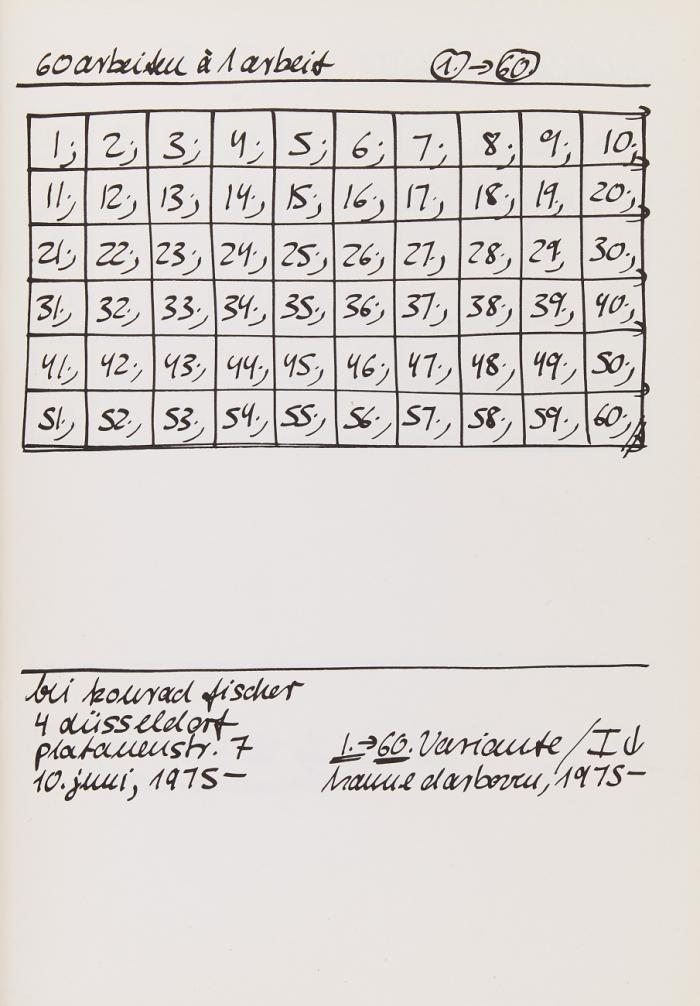 60 arbeiten à 1 arbeit 1. → 60.
1.; 2.; 3.; 4.; 5.; 6.; 7.; 8.; 9.; 10.;
11.; 12.; 13.; 14.; 15.; 16.; 17.; 18.; 19.; 20.;
21.; 22.; 23.; 24.; 25.; 26.; 27.; 28.; 29.; 30.;
31.; 32.; 33.; 34.; 35.; 36.; 37.; 38.; 39.; 40.;
41.; 42.; 43.; 44.; 45.; 46.; 47.; 48.; 49.; 50.;
51.; 52.; 53.; 54.; 55.; 56.; 57.; 58.; 59.; 60.;
bei konrad fischer
4 düsseldorf
platanenstr. 7 1. → 60. Variante / I ↓
10. juni, 1975 – hanne darboven, 1975 –